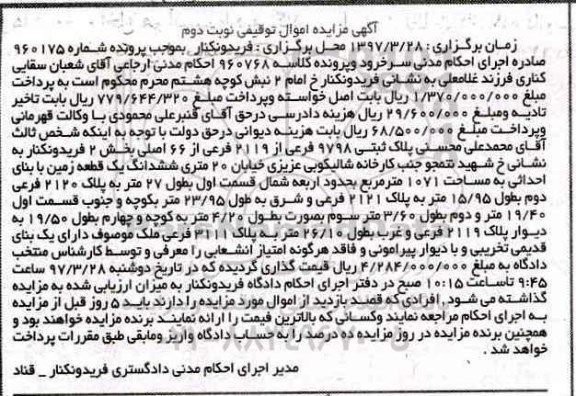 آگهی مزایده اموال توقیفی نوبت دوم
زمان برگزاری : ۱۳۹۷/۳/۲۸ محل برگزاری : فریدونکنار  بموجب پرونده شماره ۹۶۰۱۷۵
صادره اجرای احکام مدنی سرخرود وپرونده کلاسه ۹۶۰۷۶۸ احکام مدنی ارجاعی آقای شعبان سقایی
کناری فرزند غلامعلی به نشانی فریدونکنار خ امام ۲ نبش کوچه هشتم محرم محکوم است به پرداخت
مبلغ ۱/۳۷۰/۰۰۰/۰۰۰ ریال بابت اصل خواسته وپرداخت مبلغ ۷۷۹/۶۴۴/۳۲۰ ریال بابت تاخیر
تادیه ومبلغ ۲۹/۶۰۰/۰۰۰ ریال هزینه دادرسی درحق آقای قنبرعلی محمودی با وکالت قهرمانی
وپرداخت مبلغ ۶۸/۵۰۰/۰۰۰ ریال بابت هزینه دیوانی درحق دولت با توجه به اینکه شخص ثالث
آقای محمدعلی محسنی پلاک ثبتی ۹۷۹۸ فرعی از ۲۱۱۹ فرعی از ۶۶ اصلی بخش ۲ فریدونکنار به
نشانی خ شهید تتمجو جنب کارخانه شالیکوبی عزیزی خیابان ۲۰ متری ششدانگ یک قطعه زمین با بنای
احداثی به مساحت ۱۰۷۱ مترمربع بحدود اربعه شمال قسمت اول بطول ۲۷ متر به پلاک ۲۱۲۰ فرعی
دوم بطول ۱۵/۹۵ متر به پلاک ۲۱۲۱ فرعی و شرق به طول ۲۳/۹۵ متر بکوچه و جنوب قسمت اول
۱۹/۴۰ متر و دوم بطول ۳/۶۰ متر سوم بصورت بطول ۴/۲۰ متر به کوچه و چهارم بطول ۱۹/۵۰ به
دیوار پلاک ۲۱۱۹ فرعی و غرب بطول ۲۶/۱۰ متر به پلاک ۳۱۱۰ فرعی ملک موصوف دارای یک بنای
قدیمی تخریبی و با دیوار پیرامونی و فاقد هرگونه امتیاز انشعابی را معرفی و توسط کارشناس منتخب
دادگاه به مبلغ ۴/۲۸۴/۰۰۰/۰۰۰ ریال قیمت گذاری گردیده که در تاریخ دوشنبه ۹۷/۳/۲۸ ساعت
۹:۴۵ تاساعت ۱۰:۱۵ صبح در دفتر اجرای احکام دادگاه فریدونکنار به میزان ارزیابی شده به مزایده
گذاشته می شود، افرادی که قصد بازدید از اموال مورد مزایده را دارند باید ۵ روز قبل از مزایده
به اجرای احکام مراجعه نمایند وکسانی که بالاترین قیمت را ارائه نمایند برنده مزایده خواهند بود و
همچنین برنده مزایده در روز مزایده ده درصد را به حساب دادگاه واریز ومابقی طبق مقررات پرداخت
خواهد شد .
مدیر اجرای احکام مدنی دادگستری فریدونکنار _ قناد